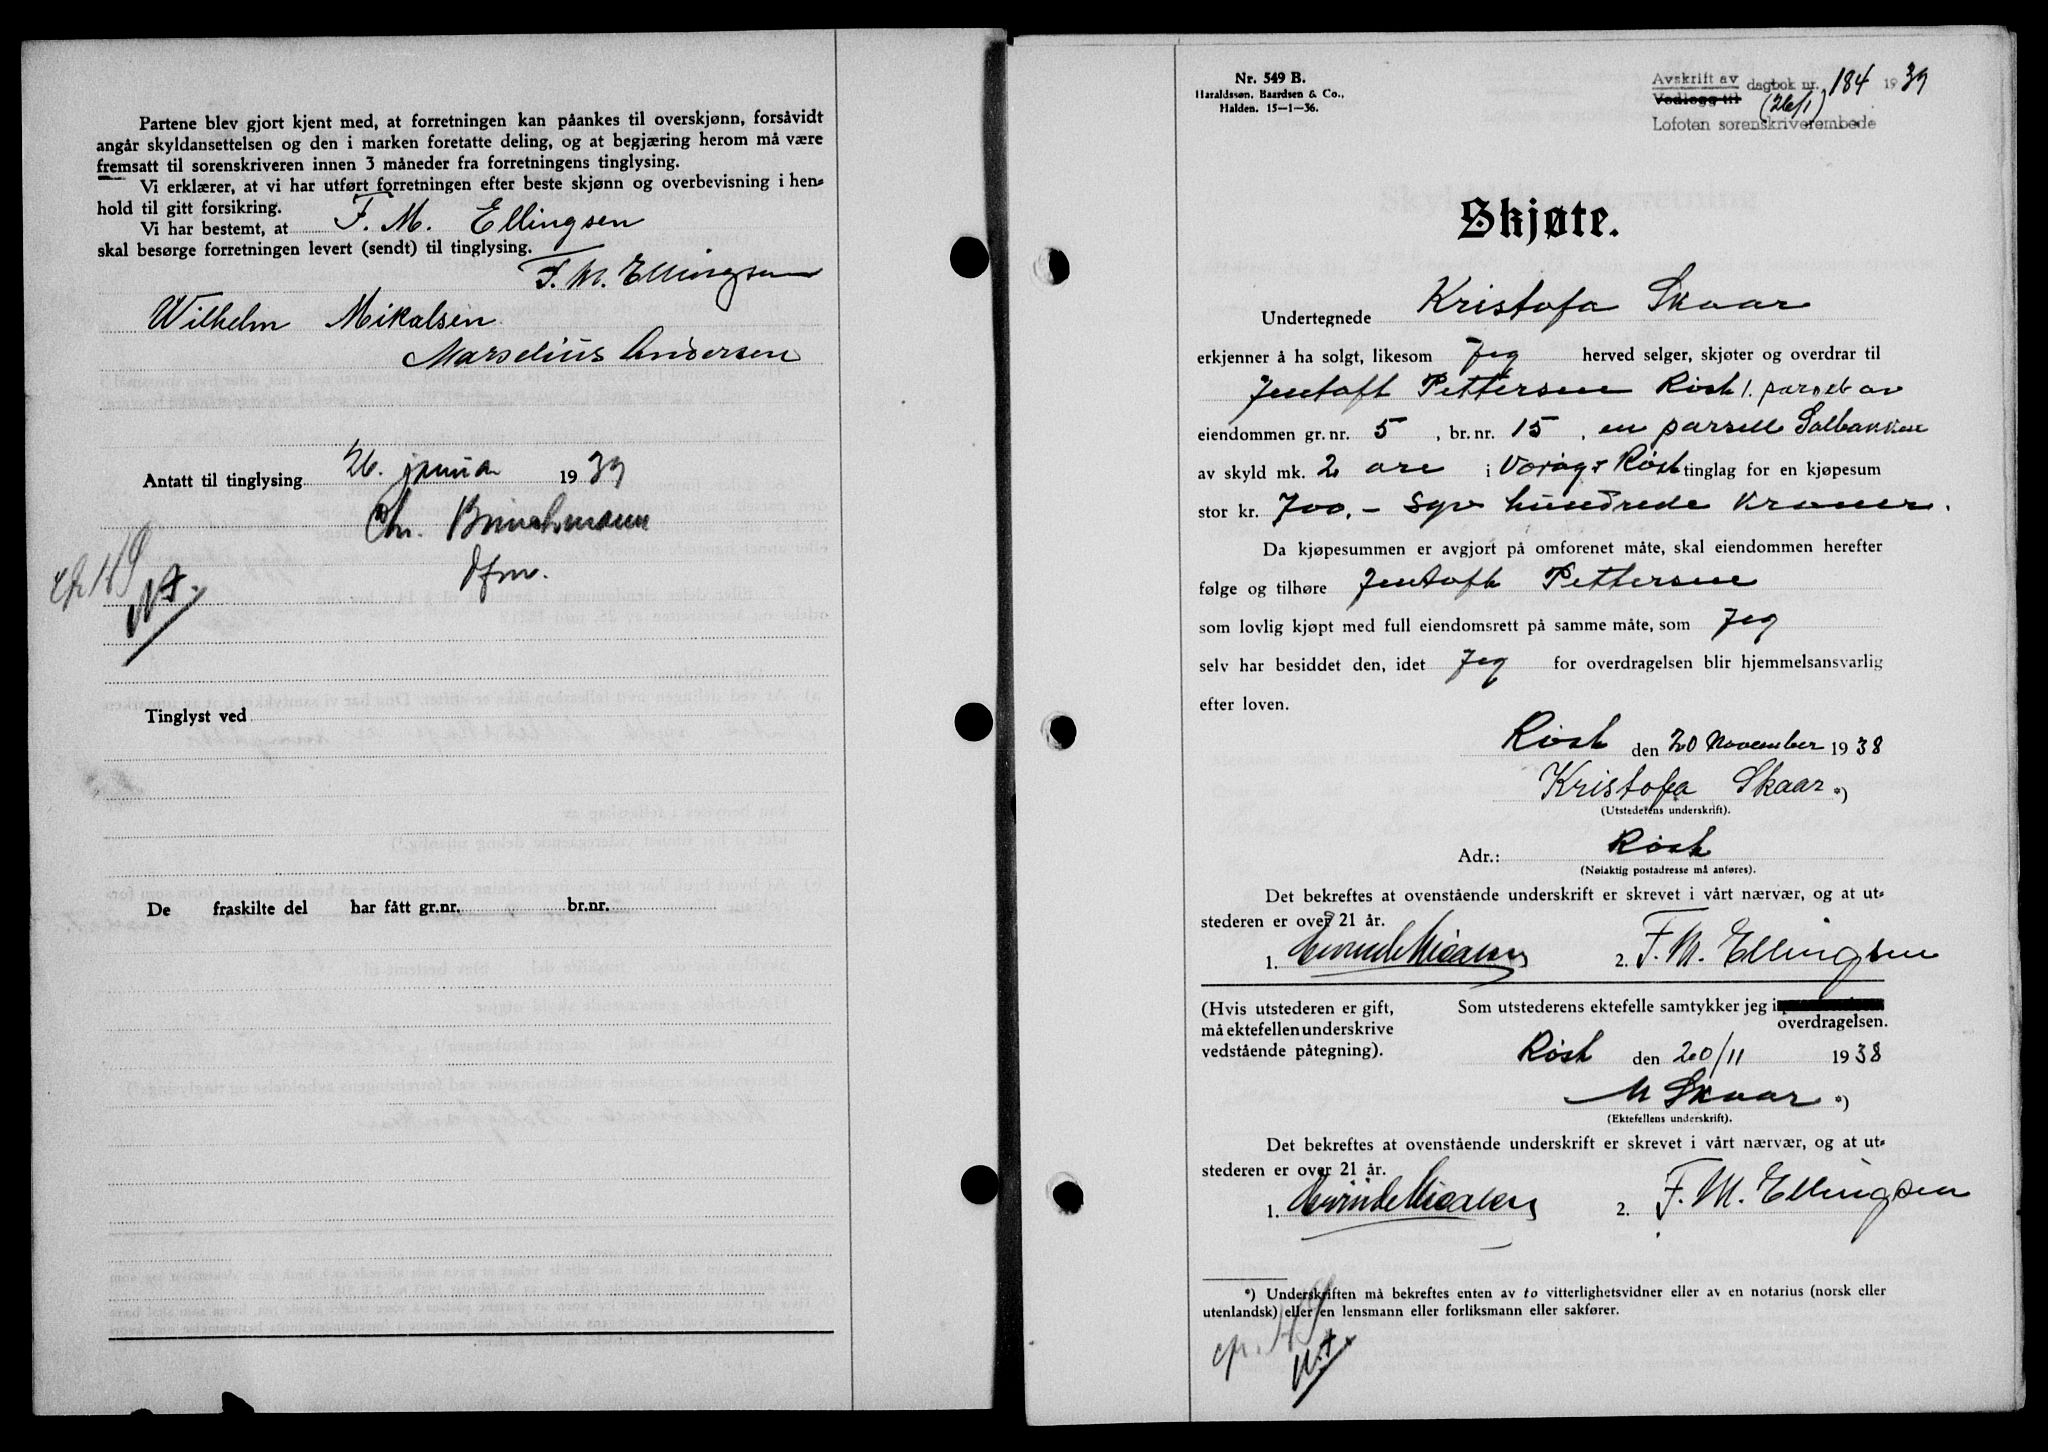 Partene blev gjort kjent med, at forretningen kan påankes til overskjønn, forsåvidt
angår skyldansettelsen og den i marken foretatte deling, og at begjæring herom må være
fremsatt til sorenskriveren innen 3 måneder fra forretningens tinglysing.
Vi erklærer, at vi har utført forretningen efter beste skjønn og overbevisning i hen-
hold til gitt forsikring.
Vi har bestemt, at F. M. Ellingsen
skal besørge forretningen levert (sendt) til tinglysing.
F. M. Ellingsen
Wilhelm Mikalsen
Marselius Andersen
Antatt til tinglysing 26. januar 1939
Chr. Brinchmann
dfm.
Tinglyst ved
De fraskilte del har fått gr.nr. br.nr.
Nr. 549 B.
Haraldssøn, Baardsen & Co.,
Halden. 15-1-36.
Avskrift av
Vedlegg til
dagbok nr. 184 1939
(26/1)
Lofoten sorenskriverembede
Skjøte.
Undertegnede Kristofa Skaar
erkjenner å ha solgt, likesom Jeg herved selger, skjøter og overdrar til
Jentoft Pettersen Røst 1. parsel av
eiendommen gr. nr. 5, br. nr. 15, en parsell Solbakken
av skyld mk. 2 øre i Værøy-Røst tinglag for en kjøpesum
stor kr. 700,- syv hundrede kroner.
Da kjøpesummen er avgjort på omforenet måte, skal eiendommen herefter
følge og tilhøre Jentoft Pettersen
som lovlig kjøpt med full eiendomsrett på samme måte, som Jeg
selv har besiddet den, idet Jeg for overdragelsen blir hjemmelsansvarlig
efter loven.
Røst den 20 November 1938
Kristofa Skaar *)
(Utstederens underskrift).
Adr.: Røst
(Nøiaktig postadresse må anføres).
Det bekreftes at ovenstående underskrift er skrevet i vårt nærvær, og at ut-
stederen er over 21 år.
1. 2. F. M. Ellingsen
(Hvis utstederen er gift,
må ektefellen underskrive
vedstående påtegning).
Som utstederens ektefelle samtykker jeg i
overdragelsen.
Røst den 20/11 1938
M Skaar *)
(Ektefellens underskrift).
Det bekreftes at ovenstående underskrift er skrevet i vårt nærvær, og at ut-
stederen er over 21 år.
1. 2. F. M. Ellingsen
*) Underskriften må bekreftes enten av to vitterlighetsvidner eller av en notarius (norsk eller
utenlandsk) eller en lensmann eller forliksmann eller sakfører.